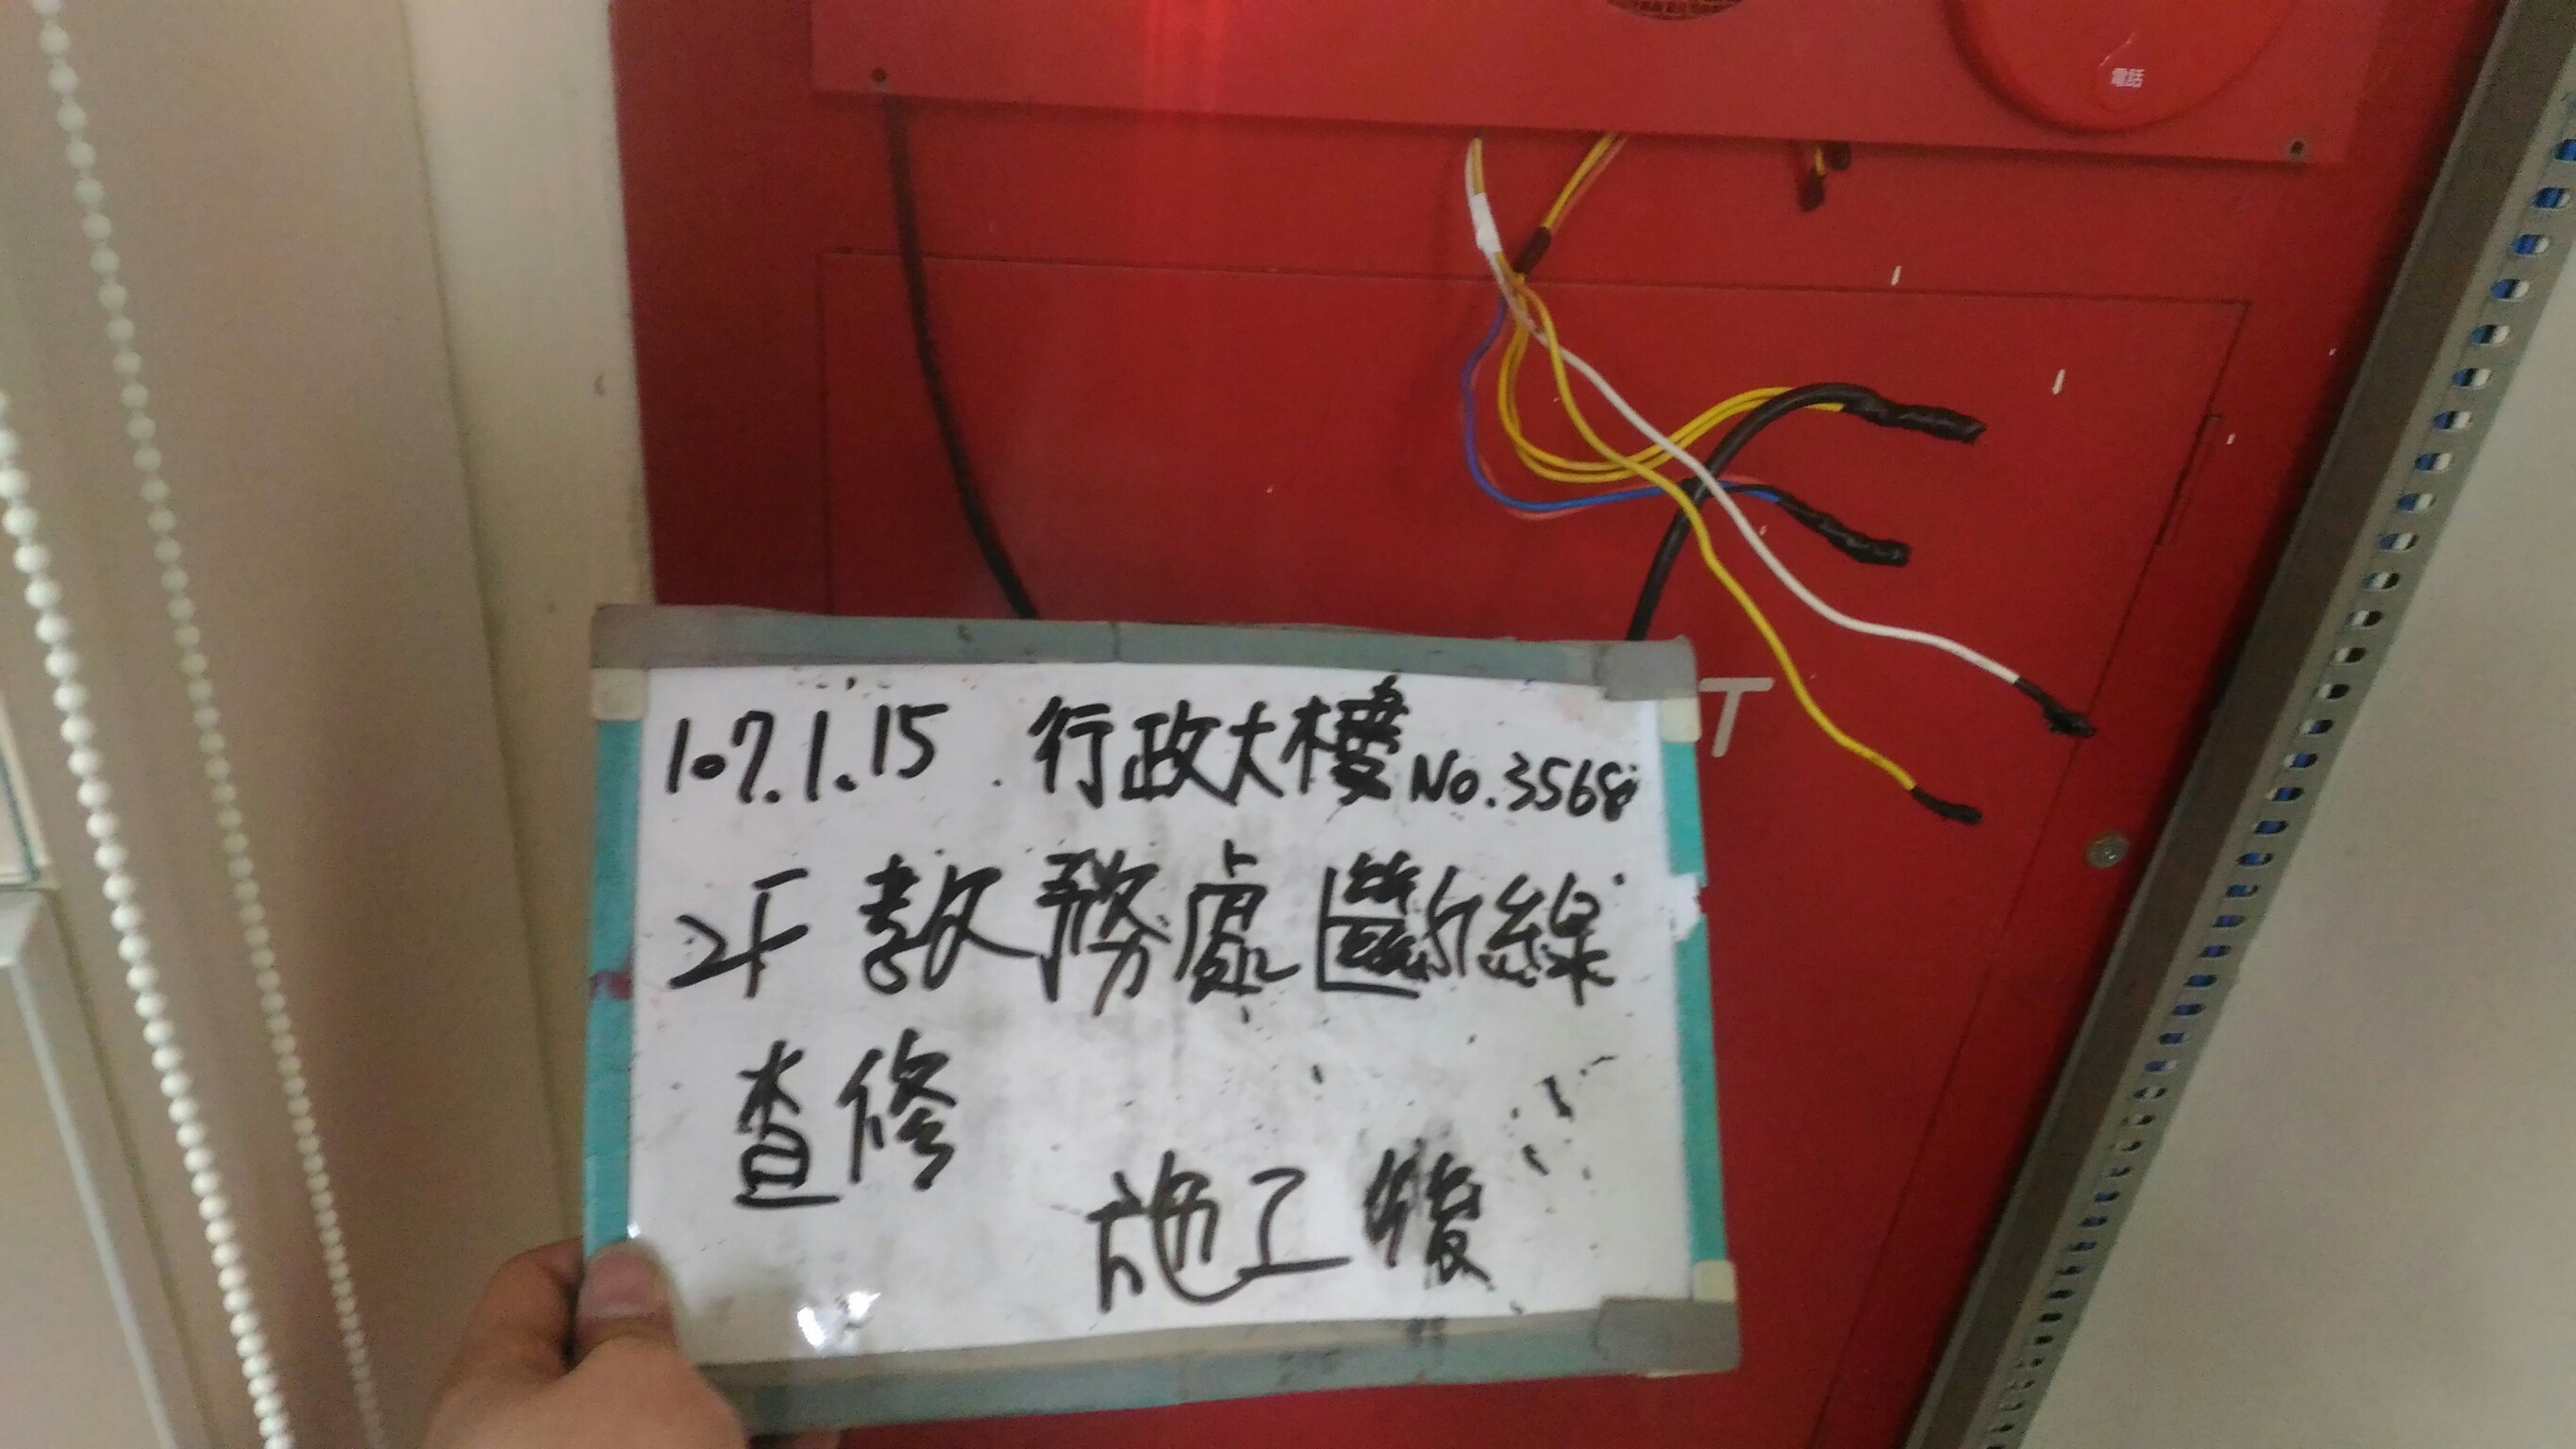 電話
T
107.1.15 行政大樓 No.3568
2F 教務處斷線
查修
施工後